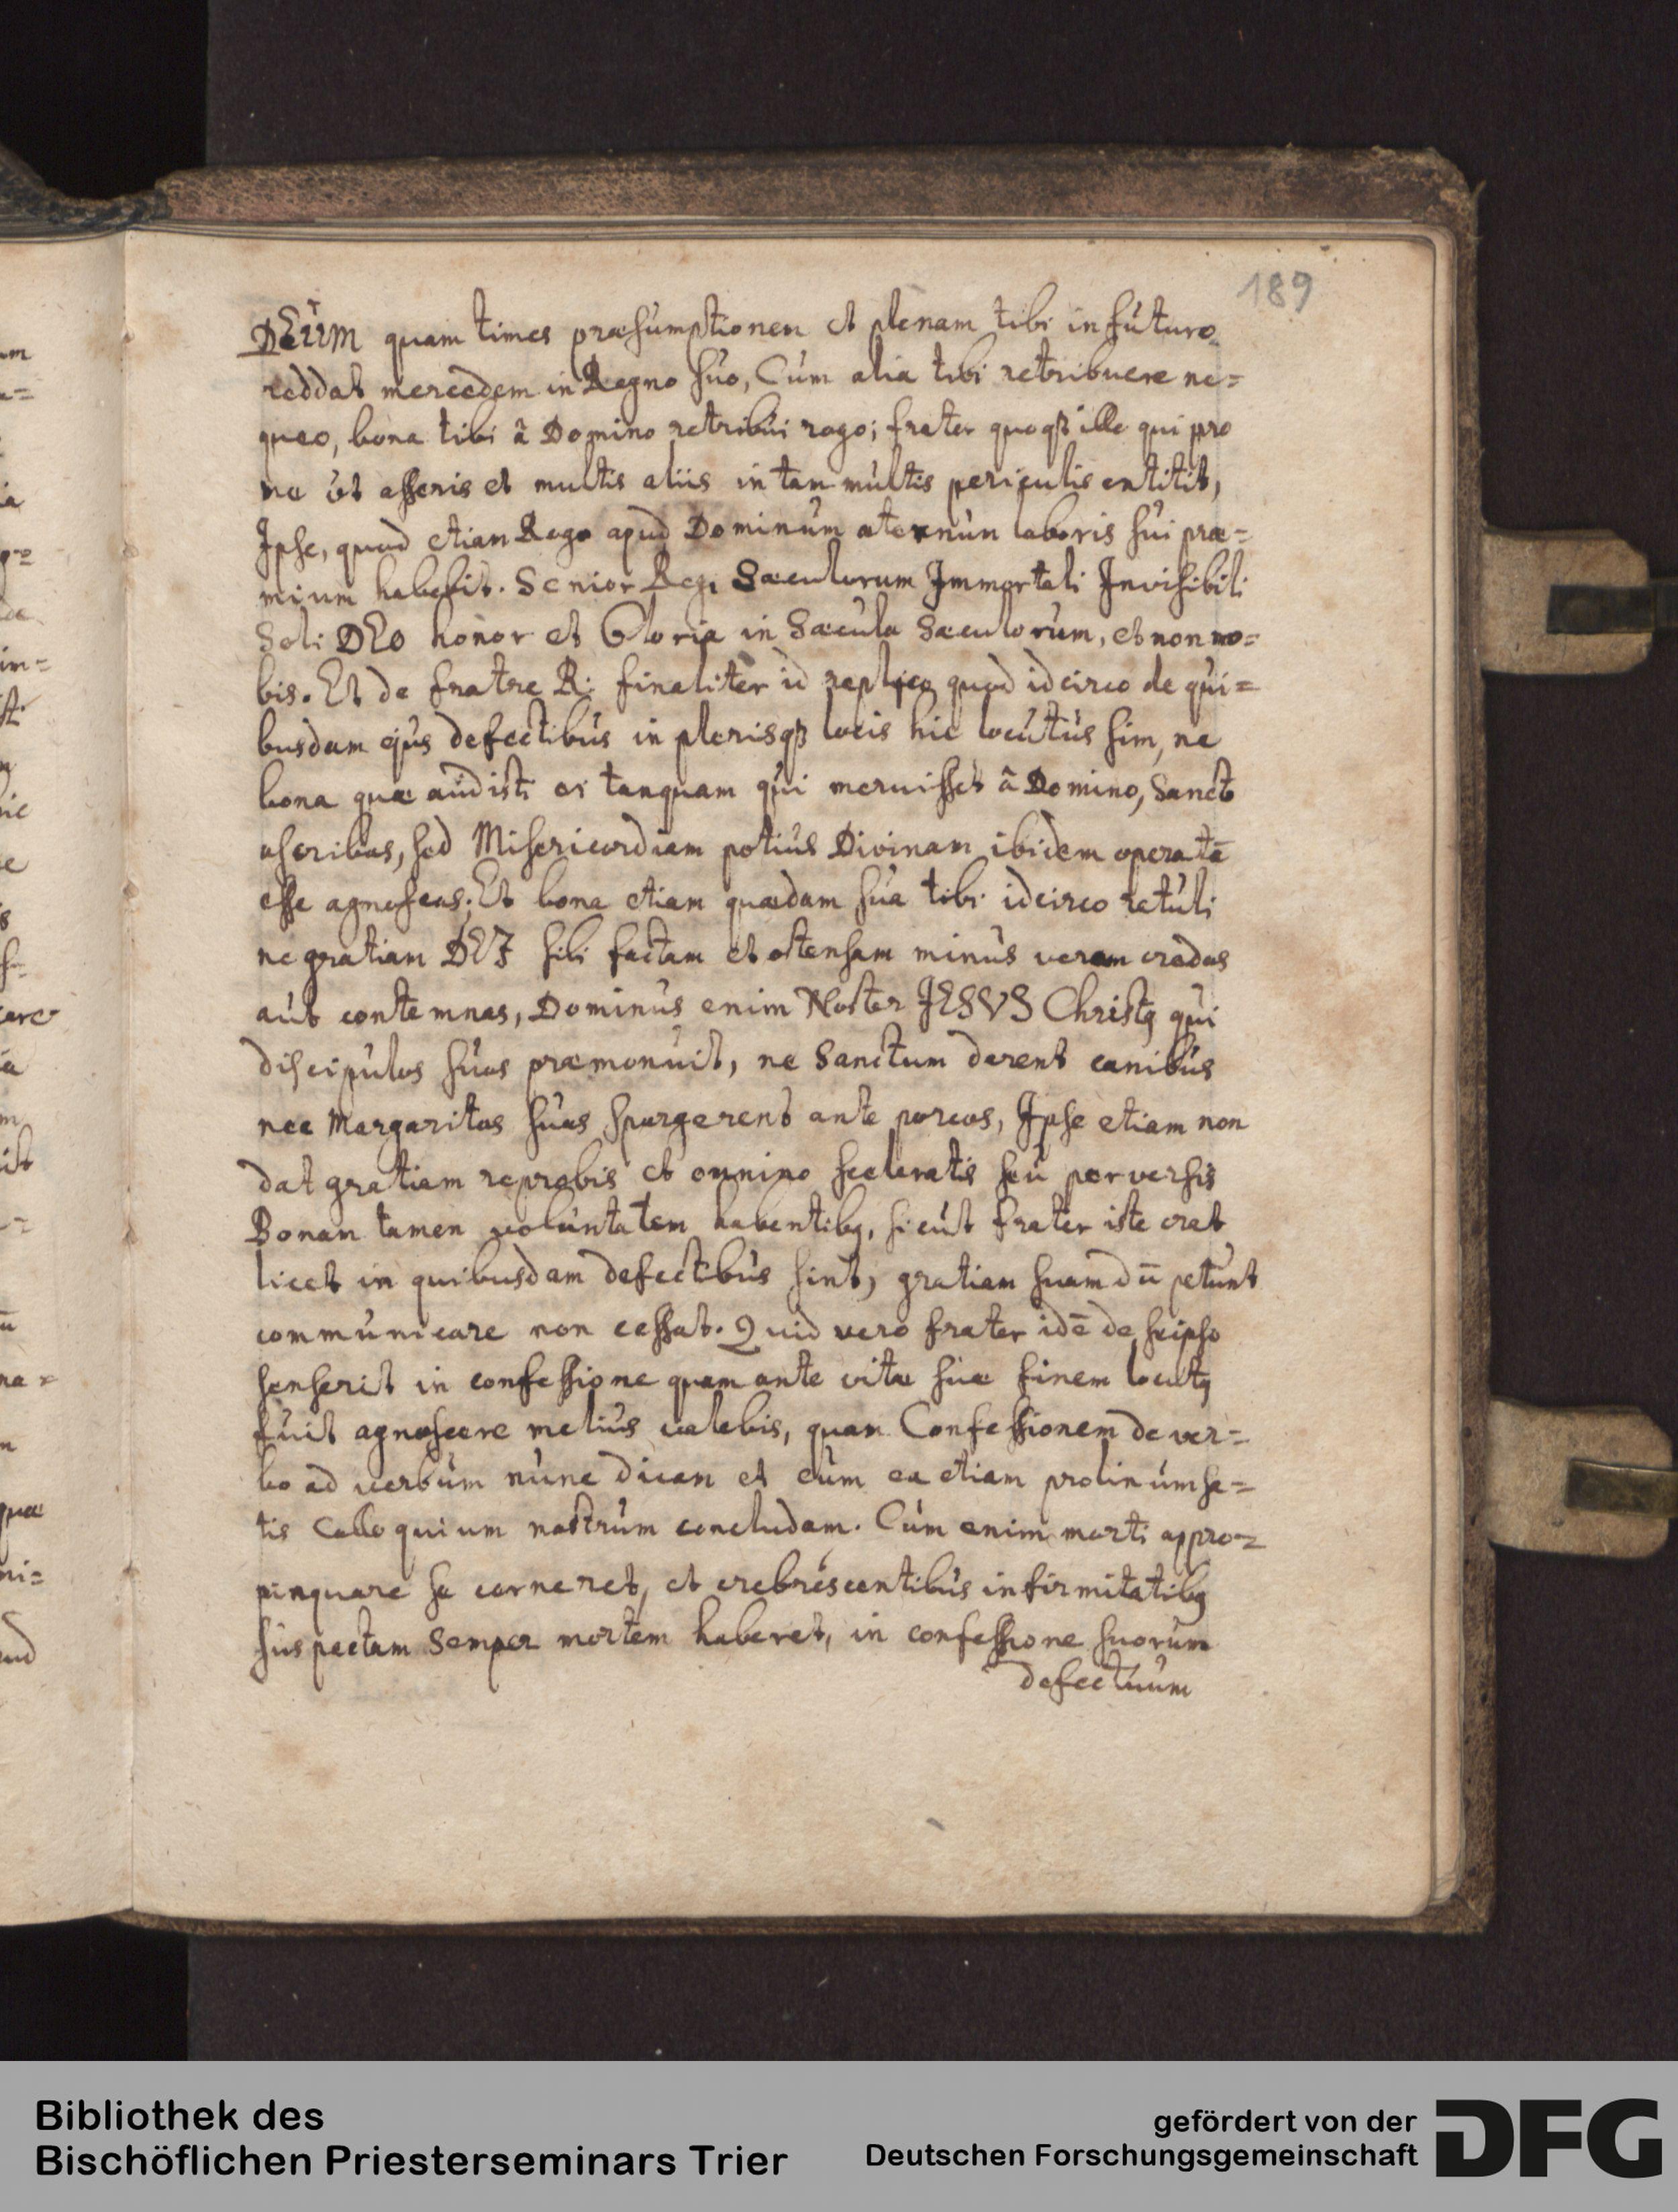 189
DEUM quam times præsumptionem et plenam tibi in futuro
reddat mercedem in Regno suo, Cum alia tibi retribuere ne=
queo, bona tibi â Domino retribui rogo; frater quoqꝫ ille qui pro
me ut asseris et multis aliis in tam multis periculis extitit,
Ipse, quod etiam Rogo apud Dominum æternum laboris sui præ=
mium habebit. Senior Regi Sæculorum Immortali Invisibili
Soli DEO honor et Gloria in Sæcula Sæculorum, et non no=
bis. Et de fratre R: finaliter id replico quod idcirco de qui=
busdam ejus defectibus in plerisqꝫ locis hic locutus sim, ne
bona quæ audisti ei tanquam qui meruisset â Domino, Sancto
ascribas, sed Misericordiam potius Divinam ibidem operatā
esse agnoscas; Et bona etiam quædam sua tibi idcirco retuli
ne gratiam DEI sibi factam et ostensam minus veram credas
aut contemnas, Dominus enim Noster JESVS Christꝰ qui
discipulos suos præmonuit, ne Sanctum darent canibus
nec Margaritas suas spargerent ante porcos, Ipse etiam non
dat gratiam reprobis et omnino sceleratis seu perversis
Bonam tamen voluntatem habentibꝰ, sicut frater iste erat
licet in quibusdam defectibus sint, gratiam suam dū petunt
communicare non cessat. Quid vero frater idē de seipso
senserit in confessione quam ante vitæ suæ finem locutꝰ
fuit agnoscere melius valebis, quam Confessionem de ver=
bo ad verbum nunc dicam et cum ea etiam prolixum sa=
tis Colloquium nostrum concludam. Cum enim morti appro=
pinquare se cerneret, et crebrescentibus infirmitatibꝰ
suspectam Semper mortem haberet, in confessione suorum
defectuum
Bibliothek des
Bischöflichen Priesterseminars Trier
gefördert von der
Deutschen Forschungsgemeinschaft
DFG